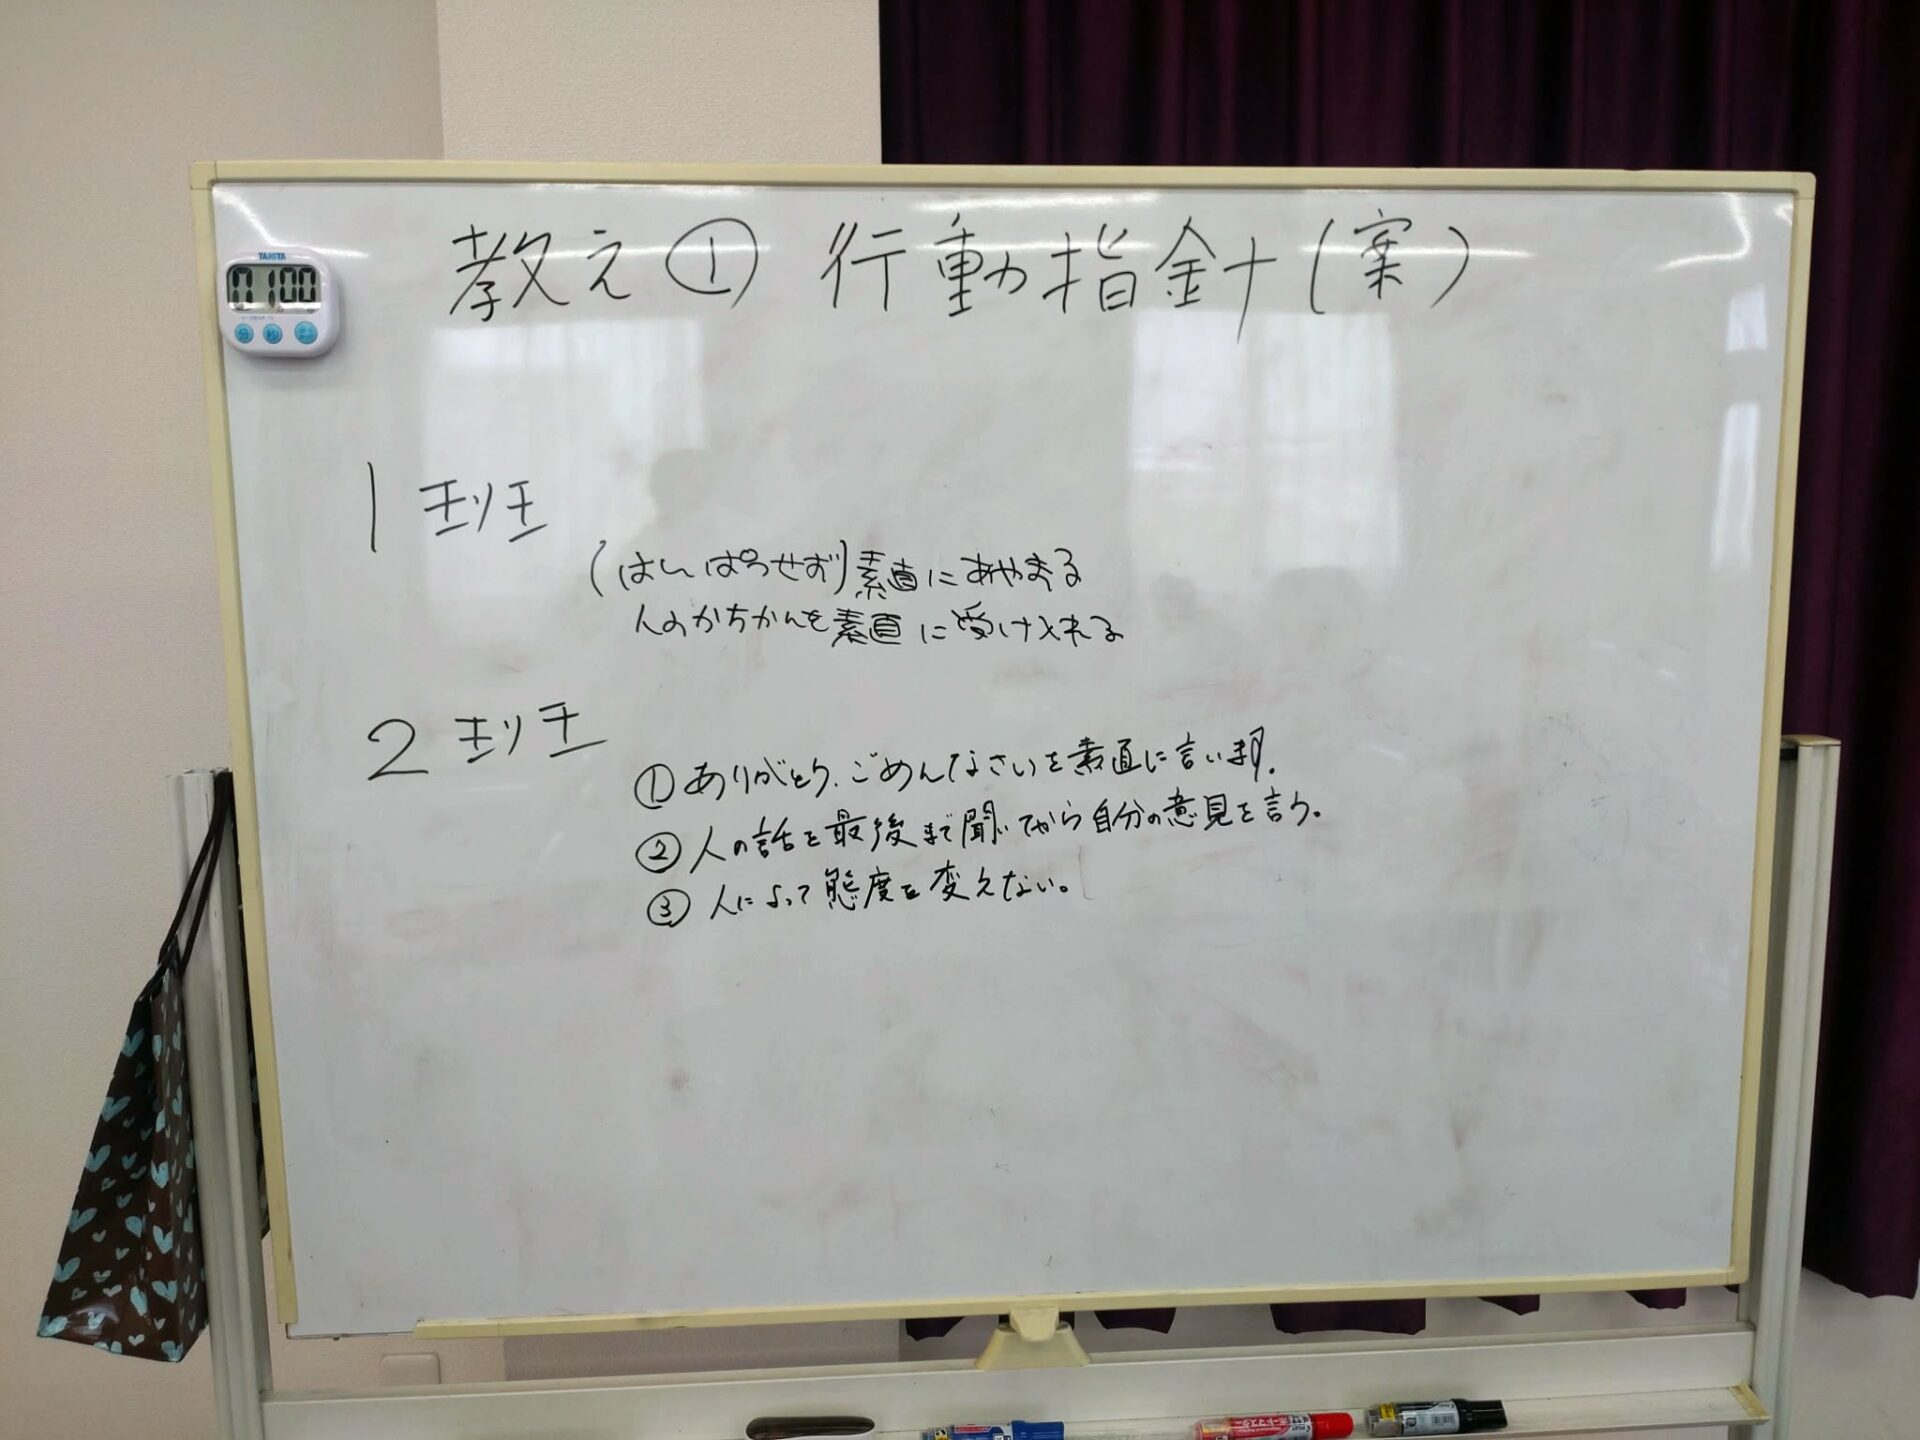 教え① 行動指針(案)
TANITA
0100
分 秒
1班
(はんぱつせず)素直にあやまる
人のかちかんを素直に受け入れる
2班
①ありがとう、ごめんなさいを素直に言います。
②人の話を最後まで聞いてから自分の意見を言う。
③人によって態度を変えない。
ボードマスター